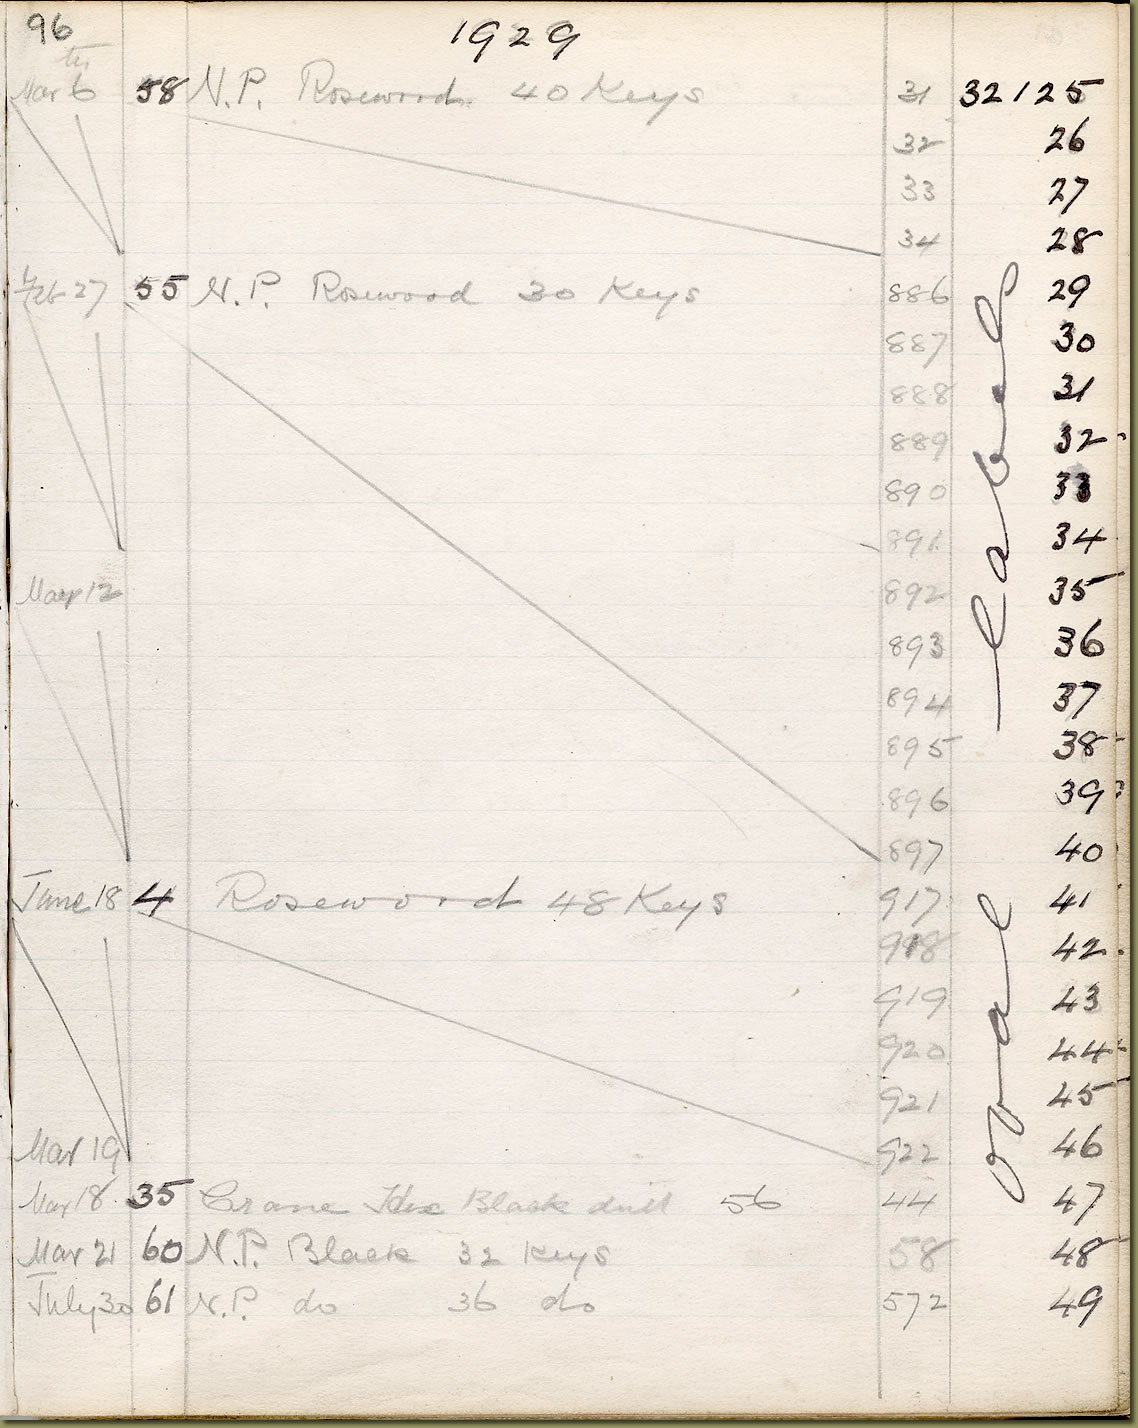 96
1929
th
Mar 6 58 N.P. Rosewood 40 Keys 31 32125
32 26
33 27
34 28
Feb 27 55 N.P. Rosewood 30 Keys 886 29
887 30
888 31
889 32
890 33
891 34
Mar 12 892 35
893 36
894 37
895 38
896 39
897 40
June 18 4 Rosewood 48 Keys 917 41
918 42
919 43
920 44
921 45
Mar 19 922 46
Mar 18 35 Crane Black dull 56 44 47
Mar 21 60 N.P. Black 32 Keys 58 48
July 30 61 N.P. do 36 do 572 49
oval labels